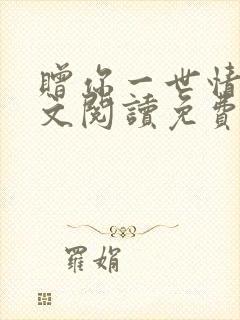 贈你一世情
文閱讀免費
羅娟